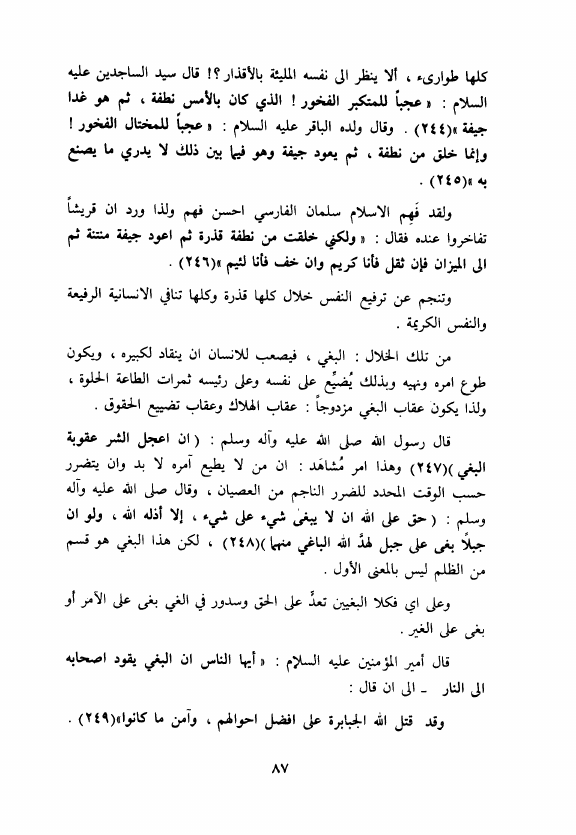 كلها طوارىء ، ألا ينظر الى نفسه المليئة بالأقذار ؟! قال سيد الساجدين عليه
السلام : « عجباً للمتكبر الفخور ! الذي كان بالأمس نطفة ، ثم هو غدا
جيفة »(٢٤٤) . وقال ولده الباقر عليه السلام : « عجباً للمختال الفخور !
وإنما خلق من نطفة ، ثم يعود جيفة وهو فيما بين ذلك لا يدري ما يصنع
به »(٢٤٥) .
ولقد فَهِم الاسلام سلمان الفارسي احسن فهم ولذا ورد ان قريشاً
تفاخروا عنده فقال : « ولكني خلقت من نطفة قذرة ثم اعود جيفة منتنة ثم
الى الميزان فإن ثقل فأنا كريم وان خف فأنا لئيم »(٢٤٦) .
وتنجم عن ترفيع النفس خلال كلها قذرة وكلها تنافي الانسانية الرفيعة
والنفس الكريمة .
من تلك الخلال : البغي ، فيصعب للانسان ان ينقاد لكبيره ، ويكون
طوع امره ونهيه وبذلك يُضيِّع على نفسه وعلى رئيسه ثمرات الطاعة الحلوة ،
ولذا يكون عقاب البغي مزدوجاً : عقاب الهلاك وعقاب تضييع الحقوق .
قال رسول الله صلى الله عليه وآله وسلم : ( ان اعجل الشر عقوبة
البغي )(٢٤٧) وهذا امر مُشاهَد : ان من لا يطيع آمره لا بد وان يتضرر
حسب الوقت المحدد للضرر الناجم من العصيان ، وقال صلى الله عليه وآله
وسلم : ( حق على الله ان لا يبغي شيء على شيء ، إلا أذله الله ، ولو ان
جبلاً بغى على جبل لهدَّ الله الباغي منهما )(٢٤٨) ، لكن هذا البغي هو قسم
من الظلم ليس بالمعنى الأول .
وعلى اي فكلا البغيين تعدٍّ على الحق وسدور في الغي بغى على الآمر أو
بغى على الغير .
قال أمير المؤمنين عليه السلام : « أيها الناس ان البغي يقود اصحابه
الى النار ـ الى ان قال :
وقد قتل الله الجبابرة على افضل احوالهم ، وآمن ما كانوا»(٢٤٩) .
٨٧